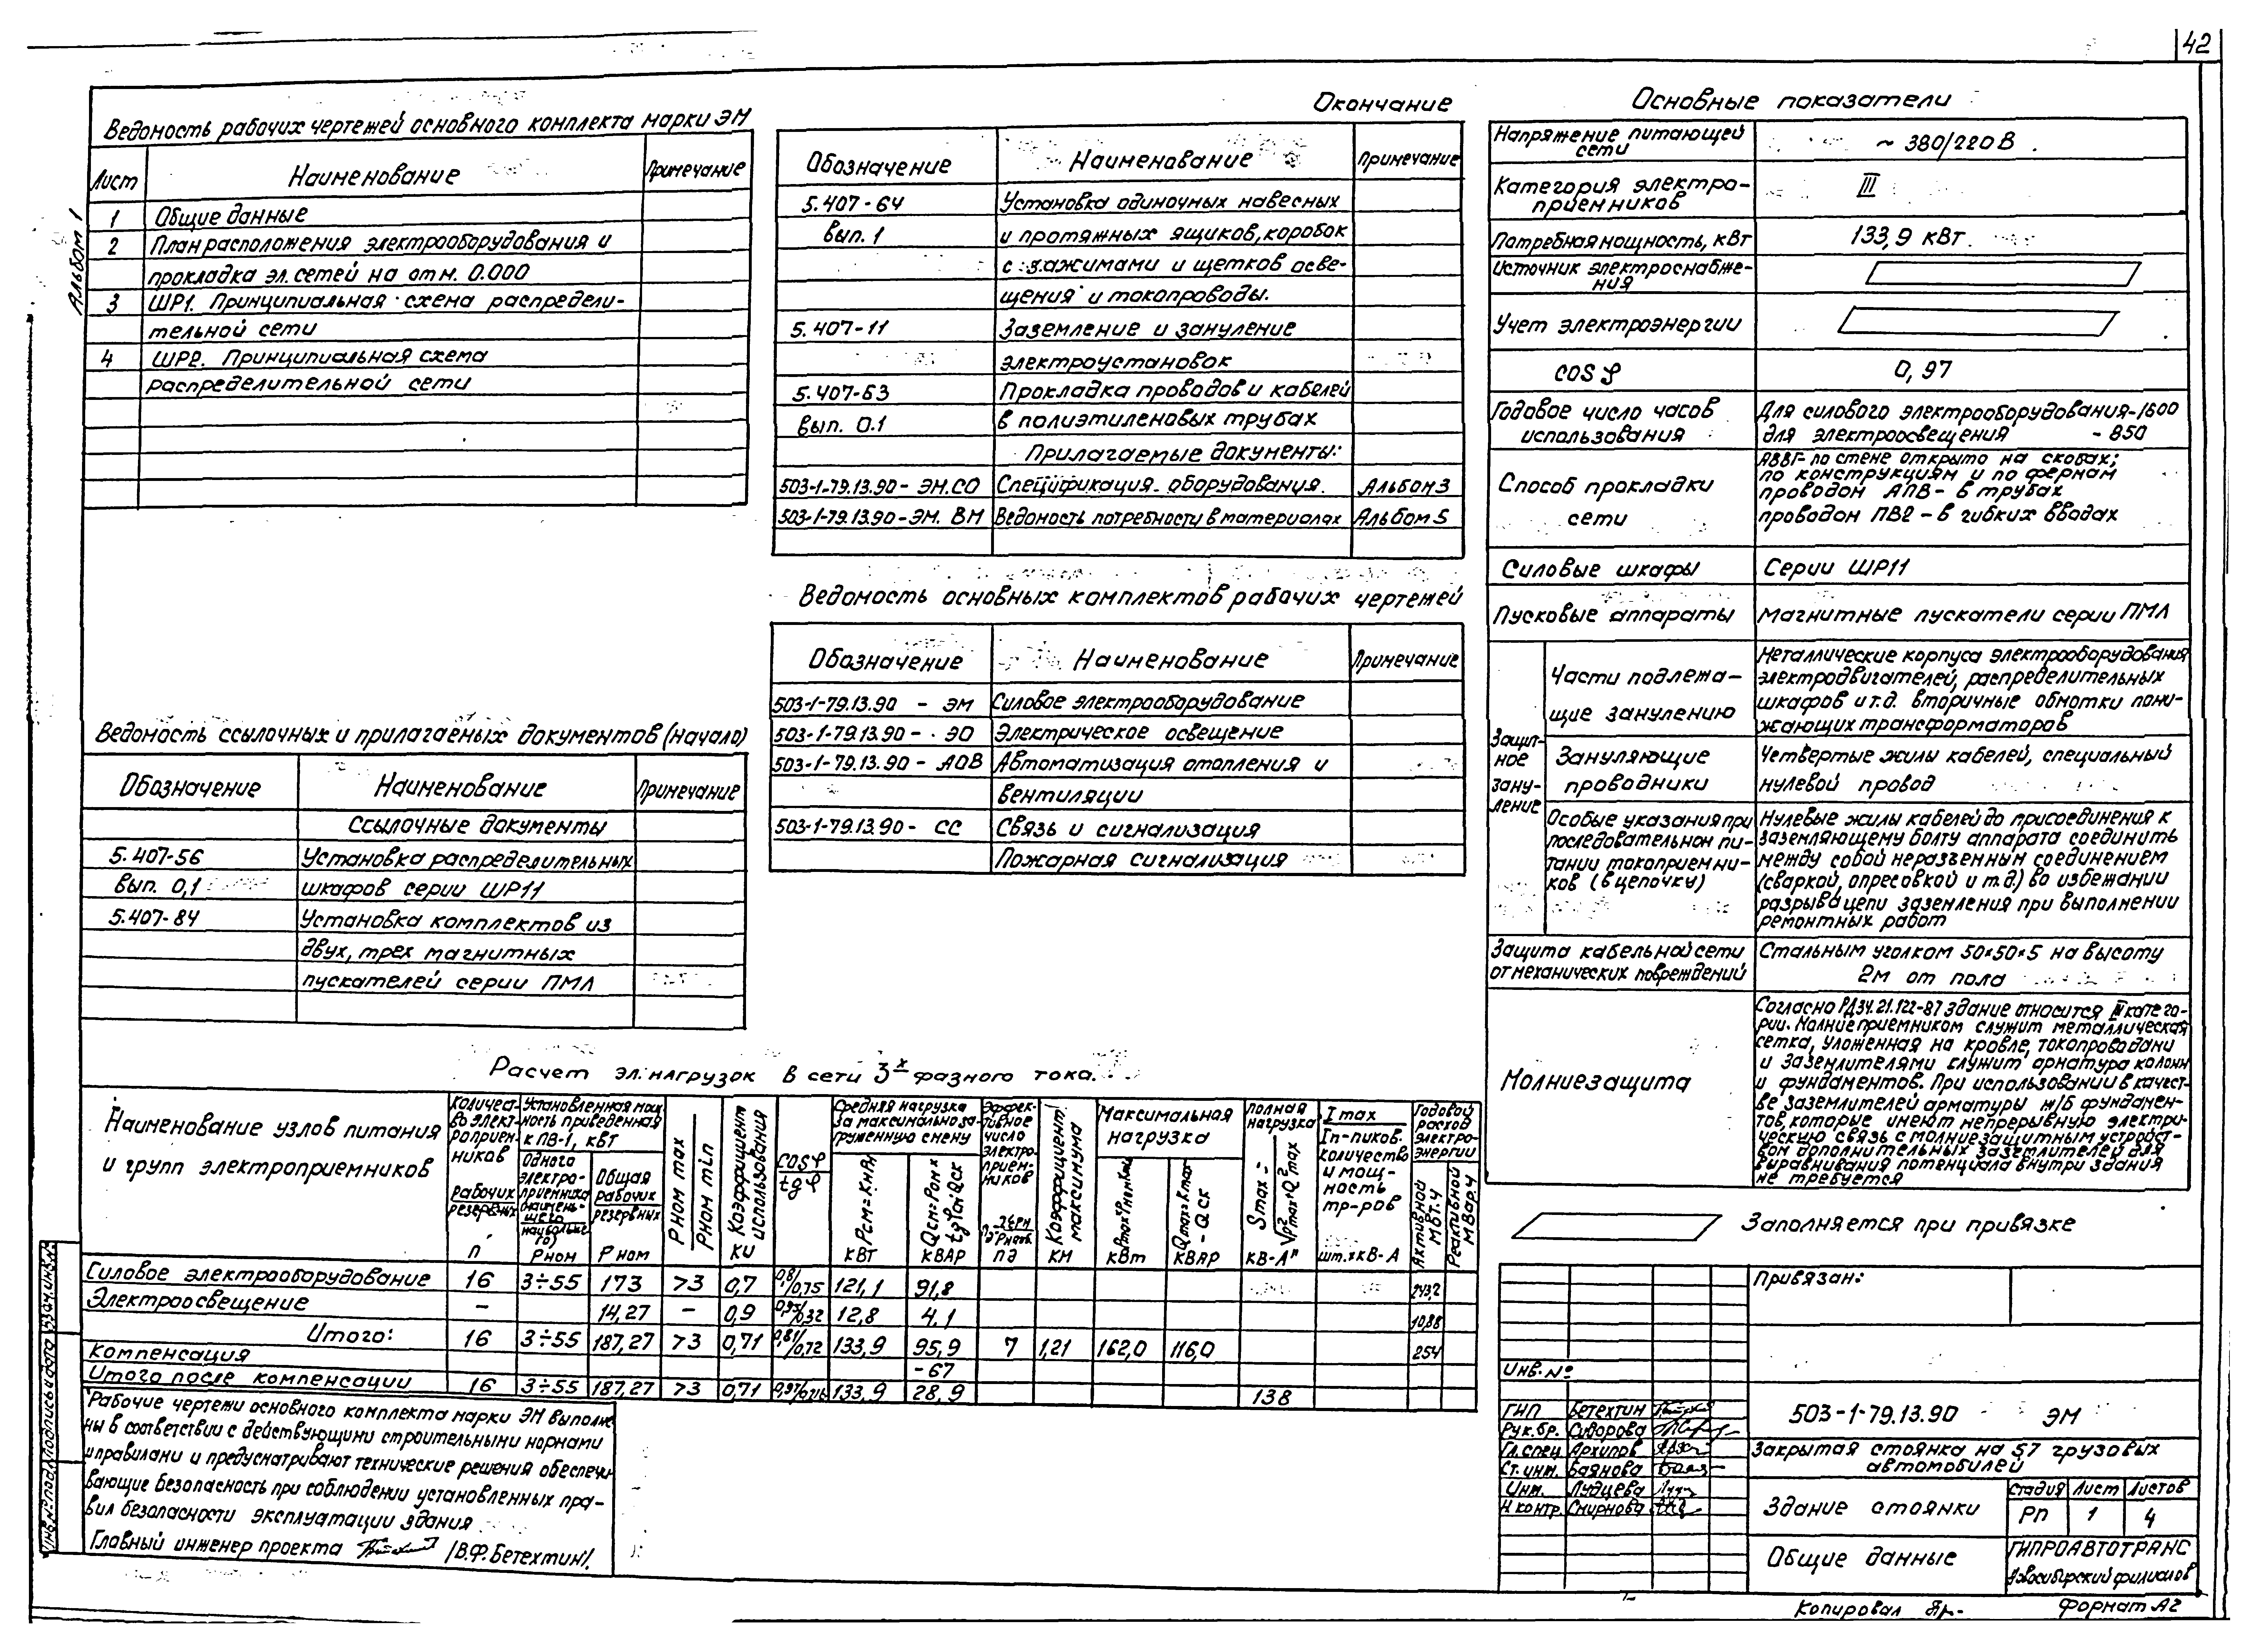 42
Альбом 1
Ведомость рабочих чертежей основного комплекта марки ЭМ
Лист Наименование Примечание
1 Общие данные
2 План расположения электрооборудования и
прокладка эл. сетей на отм. 0.000
3 ШР1. Принципиальная схема распредели-
тельной сети
4 ШР2. Принципиальная схема
распределительной сети
Ведомость ссылочных и прилагаемых документов (начало)
Обозначение Наименование Примечание
Ссылочные документы
5.407-56 Установка распределительных
вып. 0,1 шкафов серии ШР11
5.407-84 Установка комплектов из
двух, трех магнитных
пускателей серии ПМЛ
Окончание
Обозначение Наименование Примечание
5.407-64 Установка одиночных навесных
вып. 1 и протяжных ящиков, коробок
с зажимами и щитков осве-
щения и токопроводы.
5.407-11 Заземление и зануление
электроустановок
5.407-63 Прокладка проводов и кабелей
вып. 0.1 в полиэтиленовых трубах
Прилагаемые документы:
503-1-79.13.90-ЭМ.СО Спецификация оборудования. Альбом 3
503-1-79.13.90-ЭМ.ВМ Ведомость потребности в материалах Альбом 5
Ведомость основных комплектов рабочих чертежей
Обозначение Наименование Примечание
503-1-79.13.90 - ЭМ Силовое электрооборудование
503-1-79.13.90 - ЭО Электрическое освещение
503-1-79.13.90 - АОВ Автоматизация отопления и
вентиляции
503-1-79.13.90 - СС Связь и сигнализация
Пожарная сигнализация
Основные показатели
Напряжение питающей
сети ~ 380/220 В
Категория электро-
приемников III
Потребная мощность, кВт 133,9 кВт
Источник электроснабже-
ния
Учет электроэнергии
cos φ 0,97
Годовое число часов
использования
Для силового электрооборудования-1600
для электроосвещения - 850
Способ прокладки
сети
АВВГ-по стене открыто на скобах;
по конструкциям и по фермам
проводом АПВ - в трубах
проводом ПВ2 - в гибких вводах
Силовые шкафы Серии ШР11
Пусковые аппараты Магнитные пускатели серии ПМЛ
Защит-
ное
зану-
ление
Части подлежа-
щие занулению
Металлические корпуса электрооборудования
электродвигателей, распределительных
шкафов и т.д. вторичные обмотки пони-
жающих трансформаторов
Зануляющие
проводники
Четвертые жилы кабелей, специальный
нулевой провод
Особые указания при
последовательном пи-
тании токоприемни-
ков (в цепочку)
Нулевые жилы кабелей до присоединения к
заземляющему болту аппарата соединить
между собой неразъемным соединением
(сваркой, опресовкой и т.д.) во избежании
разрыва цепи заземления при выполнении
ремонтных работ
Защита кабельной сети
от механических повреждений
Стальным уголком 50×50×5 на высоту
2м от пола
Молниезащита
Согласно РД34.21.122-87 здание относится III катего-
рии. Молниеприемником служит металлическая
сетка, уложенная на кровле, токопроводами
и заземлителями служит арматура колонн
и фундаментов. При использовании в качест-
ве заземлителей арматуры ж/б фундамен-
тов, которые имеют непрерывную электри-
ческую связь с молниезащитным устройст-
вом дополнительных заземлителей для
выравнивания потенциала внутри здания
не требуется
Заполняется при привязке
Расчет эл. нагрузок в сети 3х фазного тока.
Наименование узлов питания
и групп электроприемников
Количест-
во элект-
роприем-
ников
рабочих
резервных
n
Установленная мощ-
ность приведенная
к ПВ-1, кВт
Одного
электро-
приемника
(наимень-
шего
наибольше-
го)
Рном
Общая
рабочих
резервных
Рном
Рном max
Рном min
Коэффициент
использования
Ku
cos φ
tg φ
Средняя нагрузка
за максимально за-
груженную смену
Рсм=КиРн
кВт
кВАР
Эффек-
тивное
число
электро-
прием-
ников
nэ
Коэффициент
максимума
Км
Максимальная
нагрузка
кВт
кВАР
Полная
нагрузка
Smax=
√P²max+Q²max
кВ-А
I max
Iп-пиков.
количество
и мощ-
ность
тр-ров
шт.×кВ-А
Годовой
расход
электро-
энергии
Активной
МВт.ч
Реактивной
МВар.ч
Силовое электрооборудование 16 3÷55 173 >3 0,7 0,8/0,75 121,1 91,8 243,2
Электроосвещение - 14,27 - 0,9 0,95/0,32 12,8 4,1 10,88
Итого: 16 3÷55 187,27 >3 0,71 0,81/0,72 133,9 95,9 7 1,21 162,0 116,0 254
Компенсация -67
Итого после компенсации 16 3÷55 187,27 >3 0,71 0,97/0,216 133,9 28,9 138
Рабочие чертежи основного комплекта марки ЭМ выполне-
ны в соответствии с действующими строительными нормами
и правилами и предусматривают технические решения обеспечи-
вающие безопасность при соблюдении установленных пра-
вил безопасности эксплуатации здания
Главный инженер проекта /В.Ф. Бетехтин/.
Инв.№ подл. Подпись и дата Взам.инв.№
Привязан:
Инв. №
ГИП Бетехтин
Рук.бр. Сидорова
Гл.спец Архипов
Ст.инж. Баянова
Инж. Лудцева
Н.контр. Смирнова
503-1-79.13.90 ЭМ
Закрытая стоянка на 57 грузовых
автомобилей
Здание стоянки
Стадия Лист Листов
РП 1 4
Общие данные
ГИПРОАВТОТРАНС
Новосибирский филиал
Копировал
Формат А2